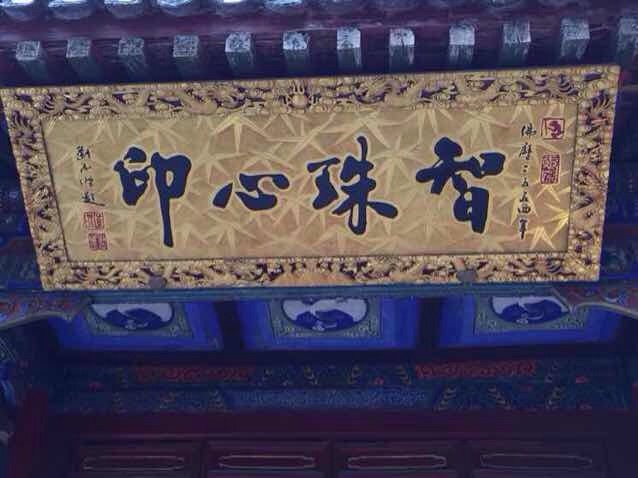 佛歷二五五四年
智珠心印